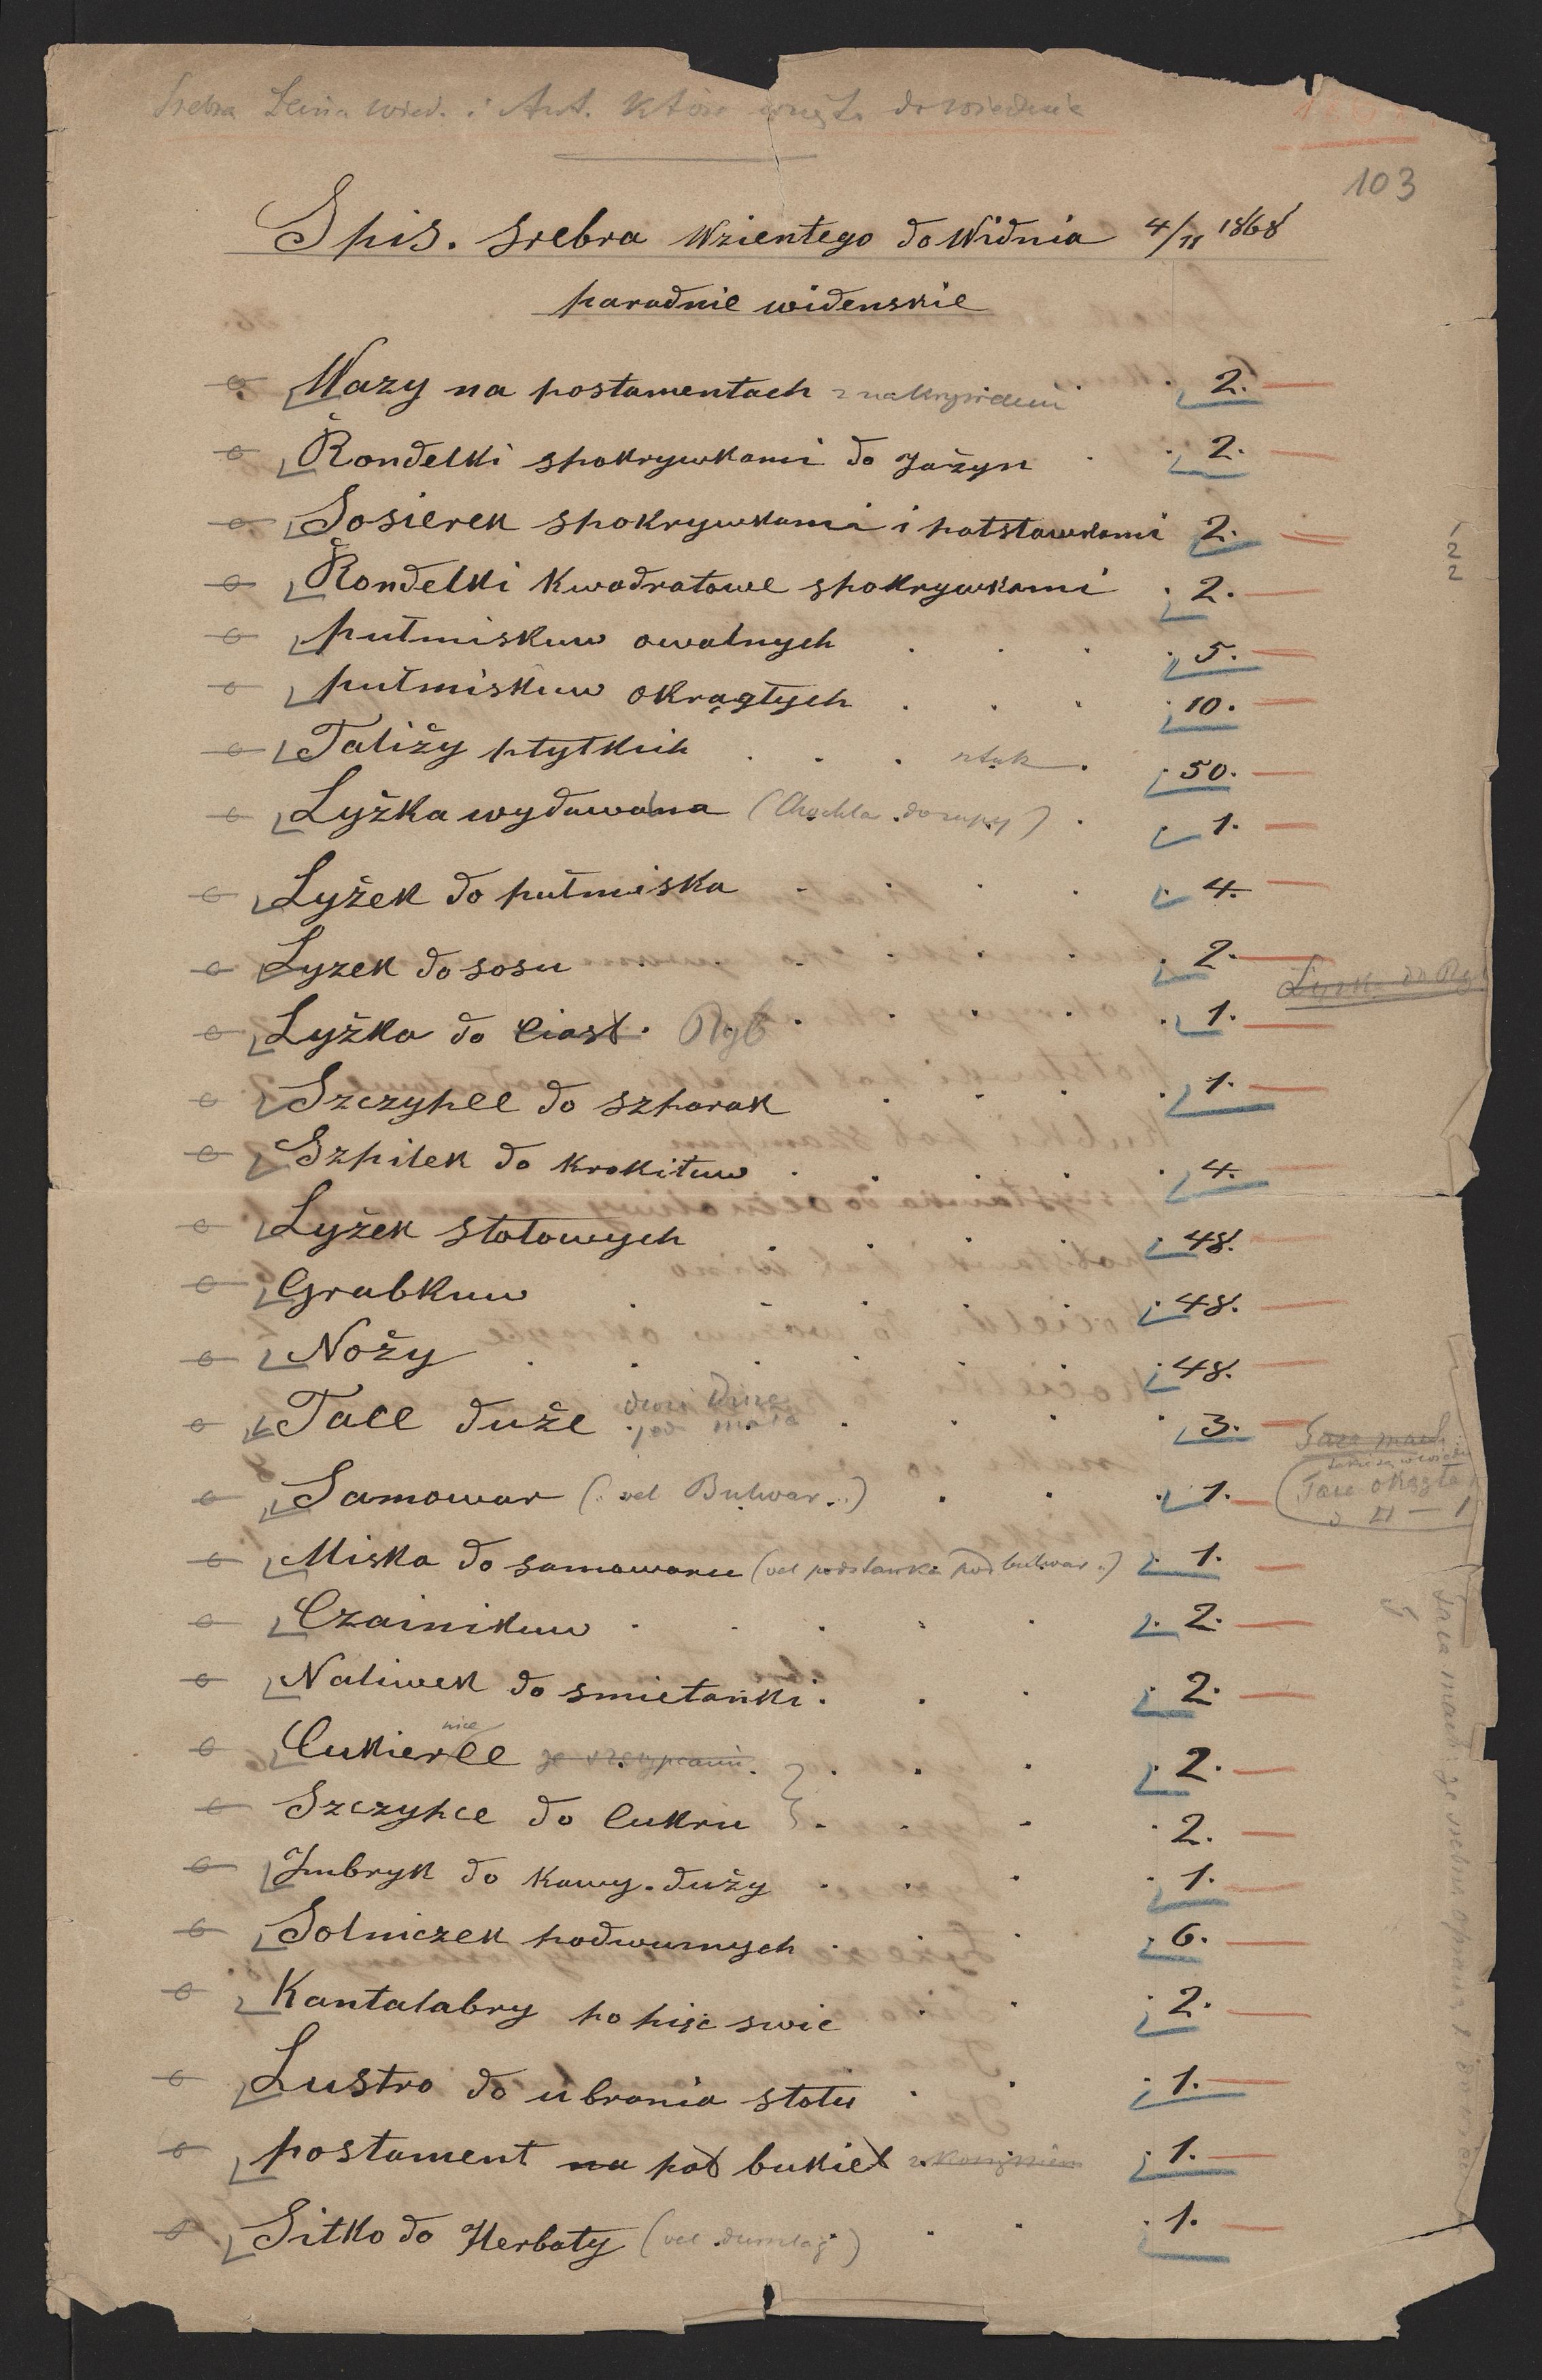 Srebra
103
Spis. srebra Wzientego do Widnia 4/II 1868
paradnie widenskie
Wazy na postamentach z nakrywami 2.
Rondelki spokrywkami do Jażyn 2.
Sosierek spokrywkami i potstawkami 2.
Rondelki Kwadratowe spokrywkami 2.
putmiskuw owalnych 5.
putmiskuw okrągłych 10.
Taliży płytkich sztuk 50.
Lyżka wydawalna (Chochla do zupy) 1.
Lyżek do putmiska 4.
Lyzek do sosu 2.
Łyżka do Ryb
Lyżka do Ciast. Ryb 1.
Szczypce do szparak 1.
Szpilek do krokituw 4.
Lyżek stołowych 48.
Grabkuw 48.
Noży 48.
Tace duże dwie duże jed mała 3.
Samowar (vel Bulwar..) 1.
Taca okrągła
Miska do samowaru (vel podstawka pod bulwar.) 1.
Czainikuw 2.
Naliwek do smietanki 2.
Cukierce nice ze szczypcami 2.
Szczypce do Cukru 2.
Jmbryk do Kawy. duży 1.
Solniczek podwunych 6.
Kantalabry po pięc swic 2.
Lustro do ubrania stołu 1.
postament na pod bukiet 1.
Sitko do Herbaty (vel durszlag) 1.
1
2
2